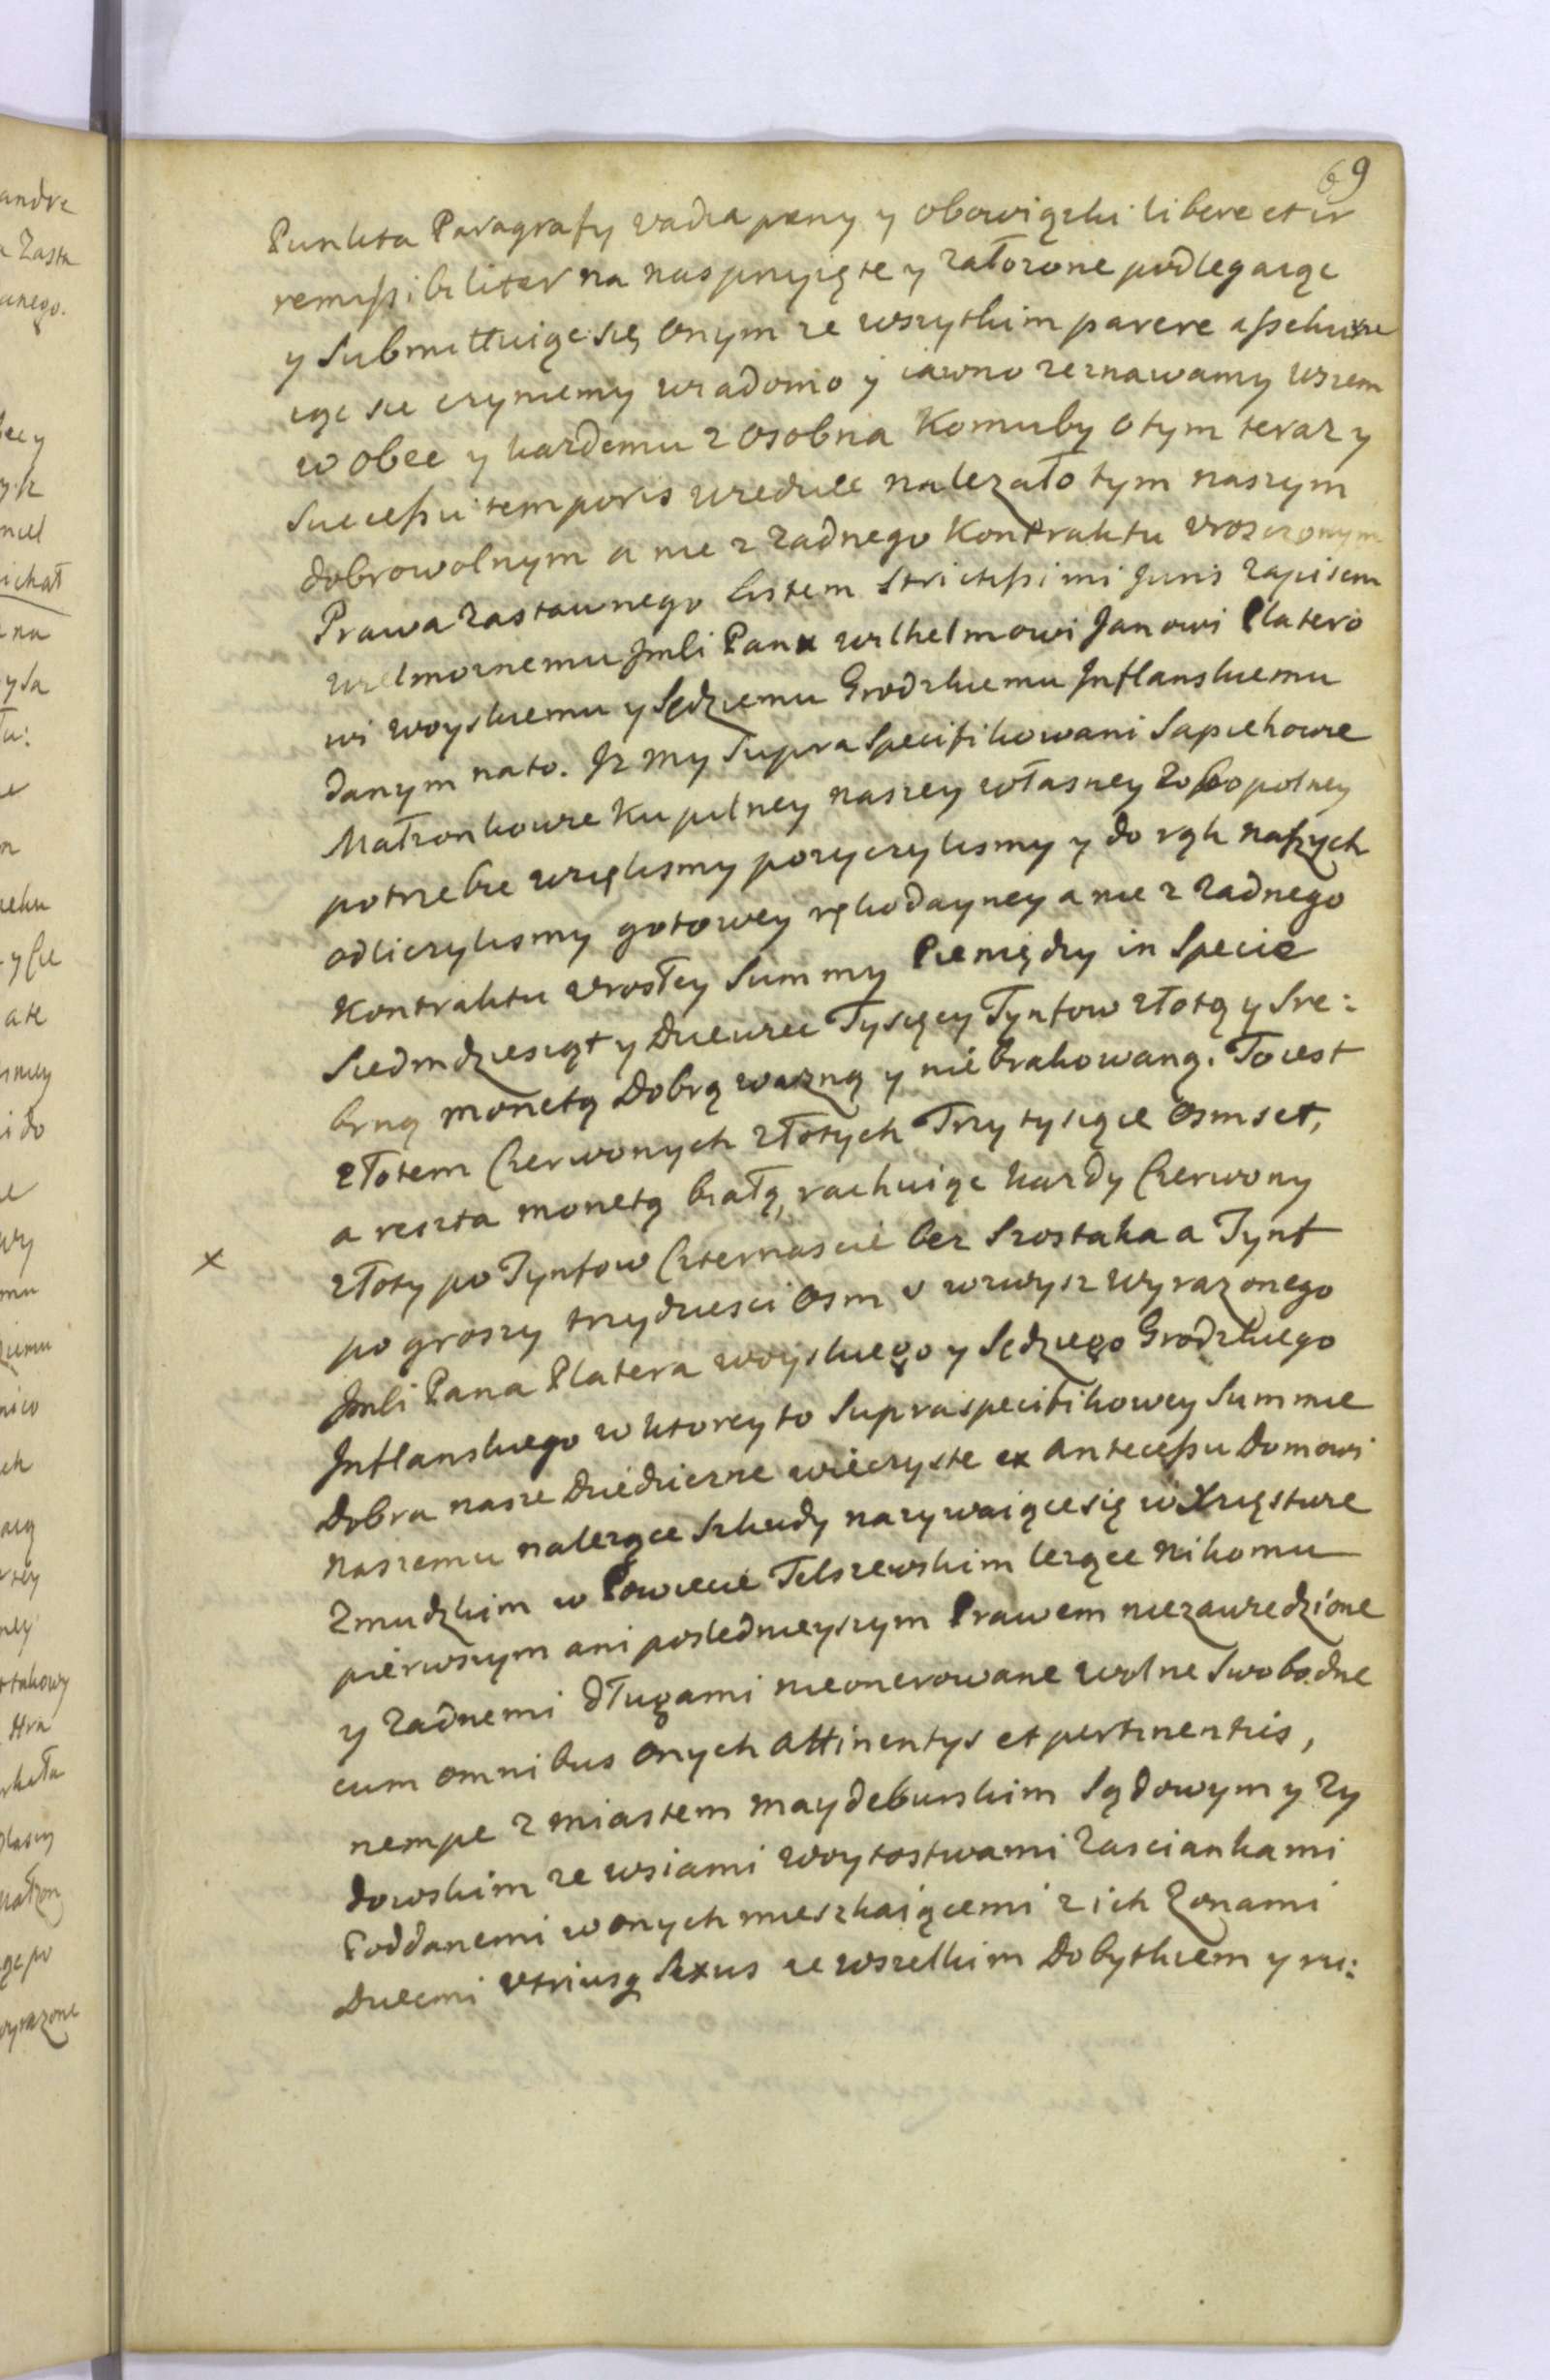 69
Punkta Paragrafy vadia pæny y obowiązki libere et ir
remissibiliter na nas przyięte y załozone podlegaiąc
y Submittuiąc się onym ze wszytkim parere assekuru
iąc sie czyniemy wiadomo y iawno zeznawamy wszem
w obec y kazdemu z osobna Komuby o tym teraz y
Successu temporis wiedziec nalezało tym naszym
dobrowolnym a nie z zadnego Kontraktu wroszczonym
Prawa Zastawnego Listem Strictissimi Juris Zapisem
wielmoznemu Jmći Panu Wilhelmowi Janowi Platero
wi woyskiemu y Sędziemu Grodzkiemu Inflanskiemu
danym na to. Iz my Supra Specifikowani Sapiehowie
Małzonkowie Ku pilney naszey własney Zobopolney
potrzebie wzięlismy pozyczylismy y do rąk naszych
odliczylismy gotowey rękodayney a nie z zadnego
Kontraktu wrosłey Summy Pieniędzy in Specie
Siedmdziesiąt y Dwiewie Tysięcy Tynfow złotą y Sre:
brną monetą dobrą wazną y nie brakowaną. To iest
złotem Czerwonych złotych Trzy tysiące Osmset,
a reszta monetą białą, rachuiąc kazdy Czerwony
x
złoty po Tynfow Czternascie bez Szostaka a Tynf
po groszy trzydziesci Osm v wzwysz wyrazonego
Jmći Pana Platera woyskiego y Sędziego Grodzkiego
Inflanskiego w ktorey to Supraspecifikowey Summie
Dobra nasze Dziedziczne wieczyste ex antecessu Domowi
naszemu nalezące Szkudy nazywaiące się w Xięstwie
Zmudzkim w Powiecie Telszewskim lezące nikomu
pierwszym ani poslednieyszym Prawem niezawiedzione
y zadnemi długami nieonerowane wolne Swobodne
cum omnibus onych attinentys et pertinentiis,
nempe z miastem maydeburskim Sądowym y Zy
dowskim ze wsiami woytostwami Zasciankami
Poddanemi w onych mieszkaiącemi z ich Zonami
Dziecmi vtriusq Sexus ze wszelkim Dobytkiem y ru: